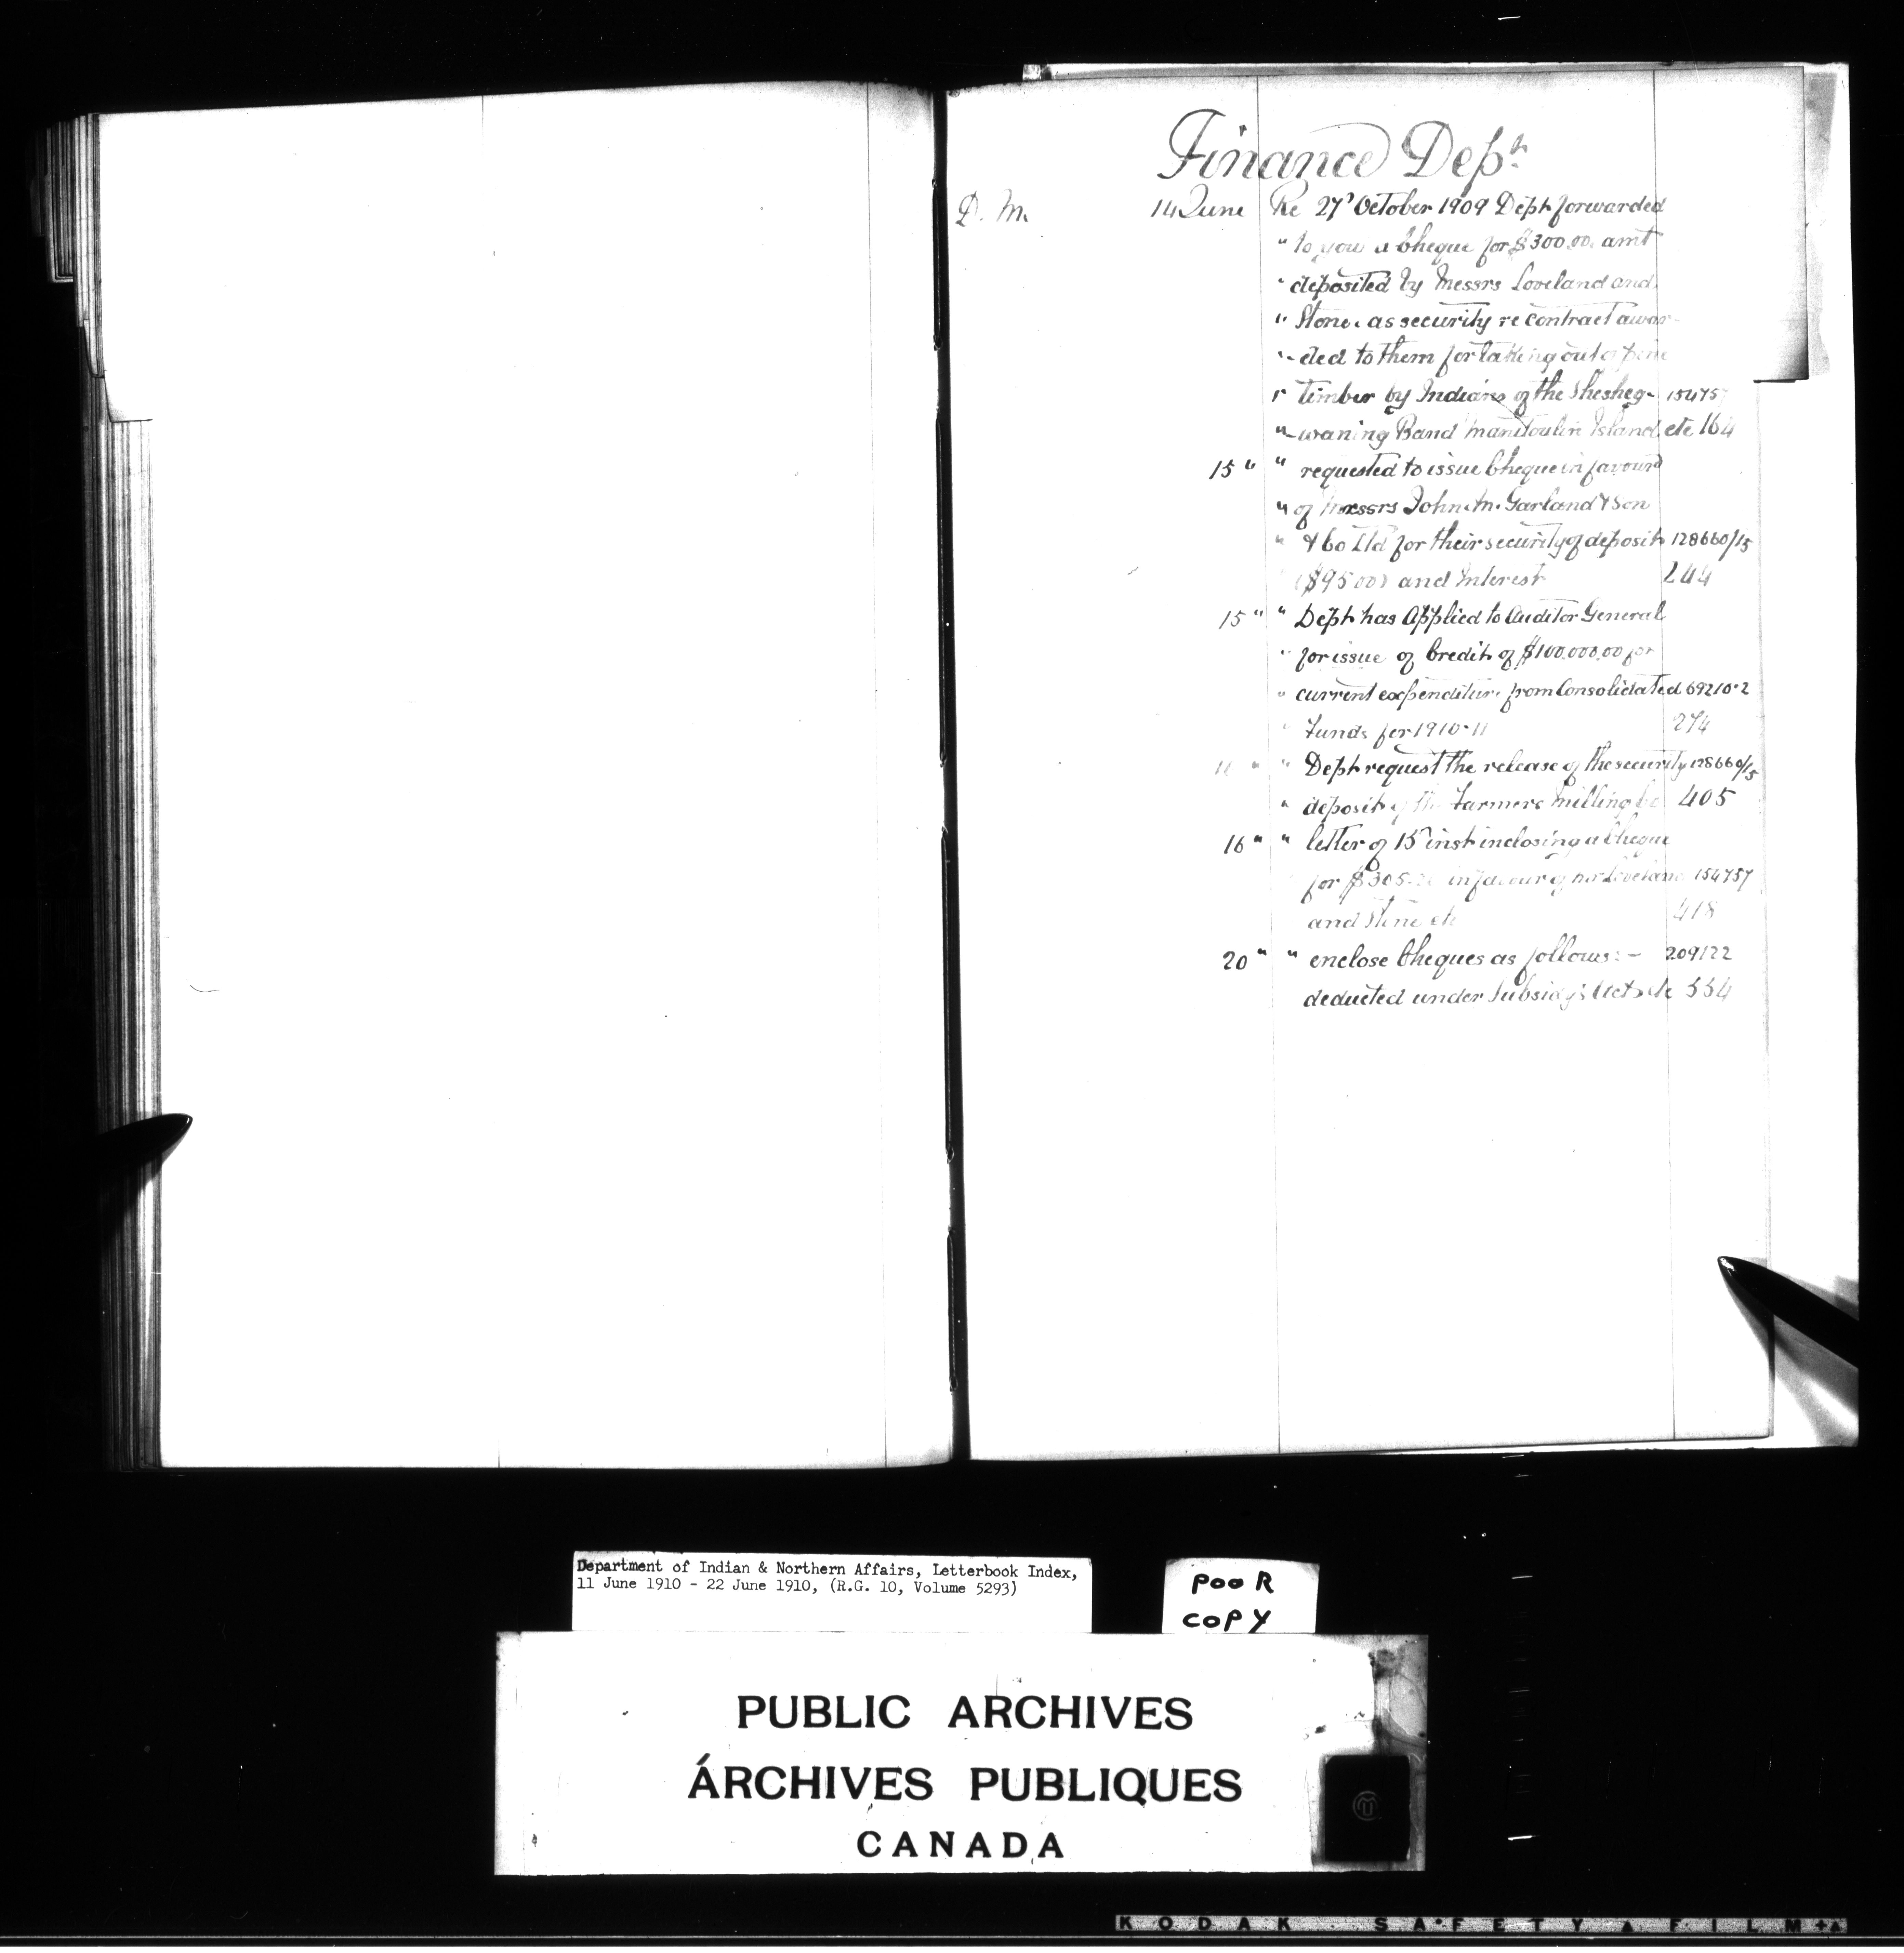 Finance Dept.
D. M. 14 June Re 27" October 1909 Dept forwarded
" to you a Cheque for $300.00. amt
" deposited by Messrs Loveland and
" Stone. as security re contract awar-
" -ded to them for taking out of pine
" timber by Indians of the Shesheg- 154757
" -waning Band Manitoulin Island etc 164
15 " " requested to issue Cheque in favour
" of Messrs John. M. Garland & Son
" & Co Ltd for their security of deposit 128660/15
($95 00) and Interest 244
15 " " Dept has Applied to Auditor General
" for issue of Credit of $100.000.00 for
" current expenditur. from Consolidated 69210-2
" Funds for 1910-11 274
16 " " Dept request the release of the security 128660/15
" deposit of the Farmers Milling Co 405
16 " " letter of 15" inst inclosing a Cheque
for $305. in favour of Loveland 154757
and Stone etc 418
20 " " enclose Cheques as follows:- 209122
deducted under Subsidy's Acts etc 554
Department of Indian & Northern Affairs, Letterbook Index,
11 June 1910 - 22 June 1910, (R.G. 10, Volume 5293)
POOR
COPY
PUBLIC ARCHIVES
ÁRCHIVES PUBLIQUES
CANADA
KODAK SAFETY FILM